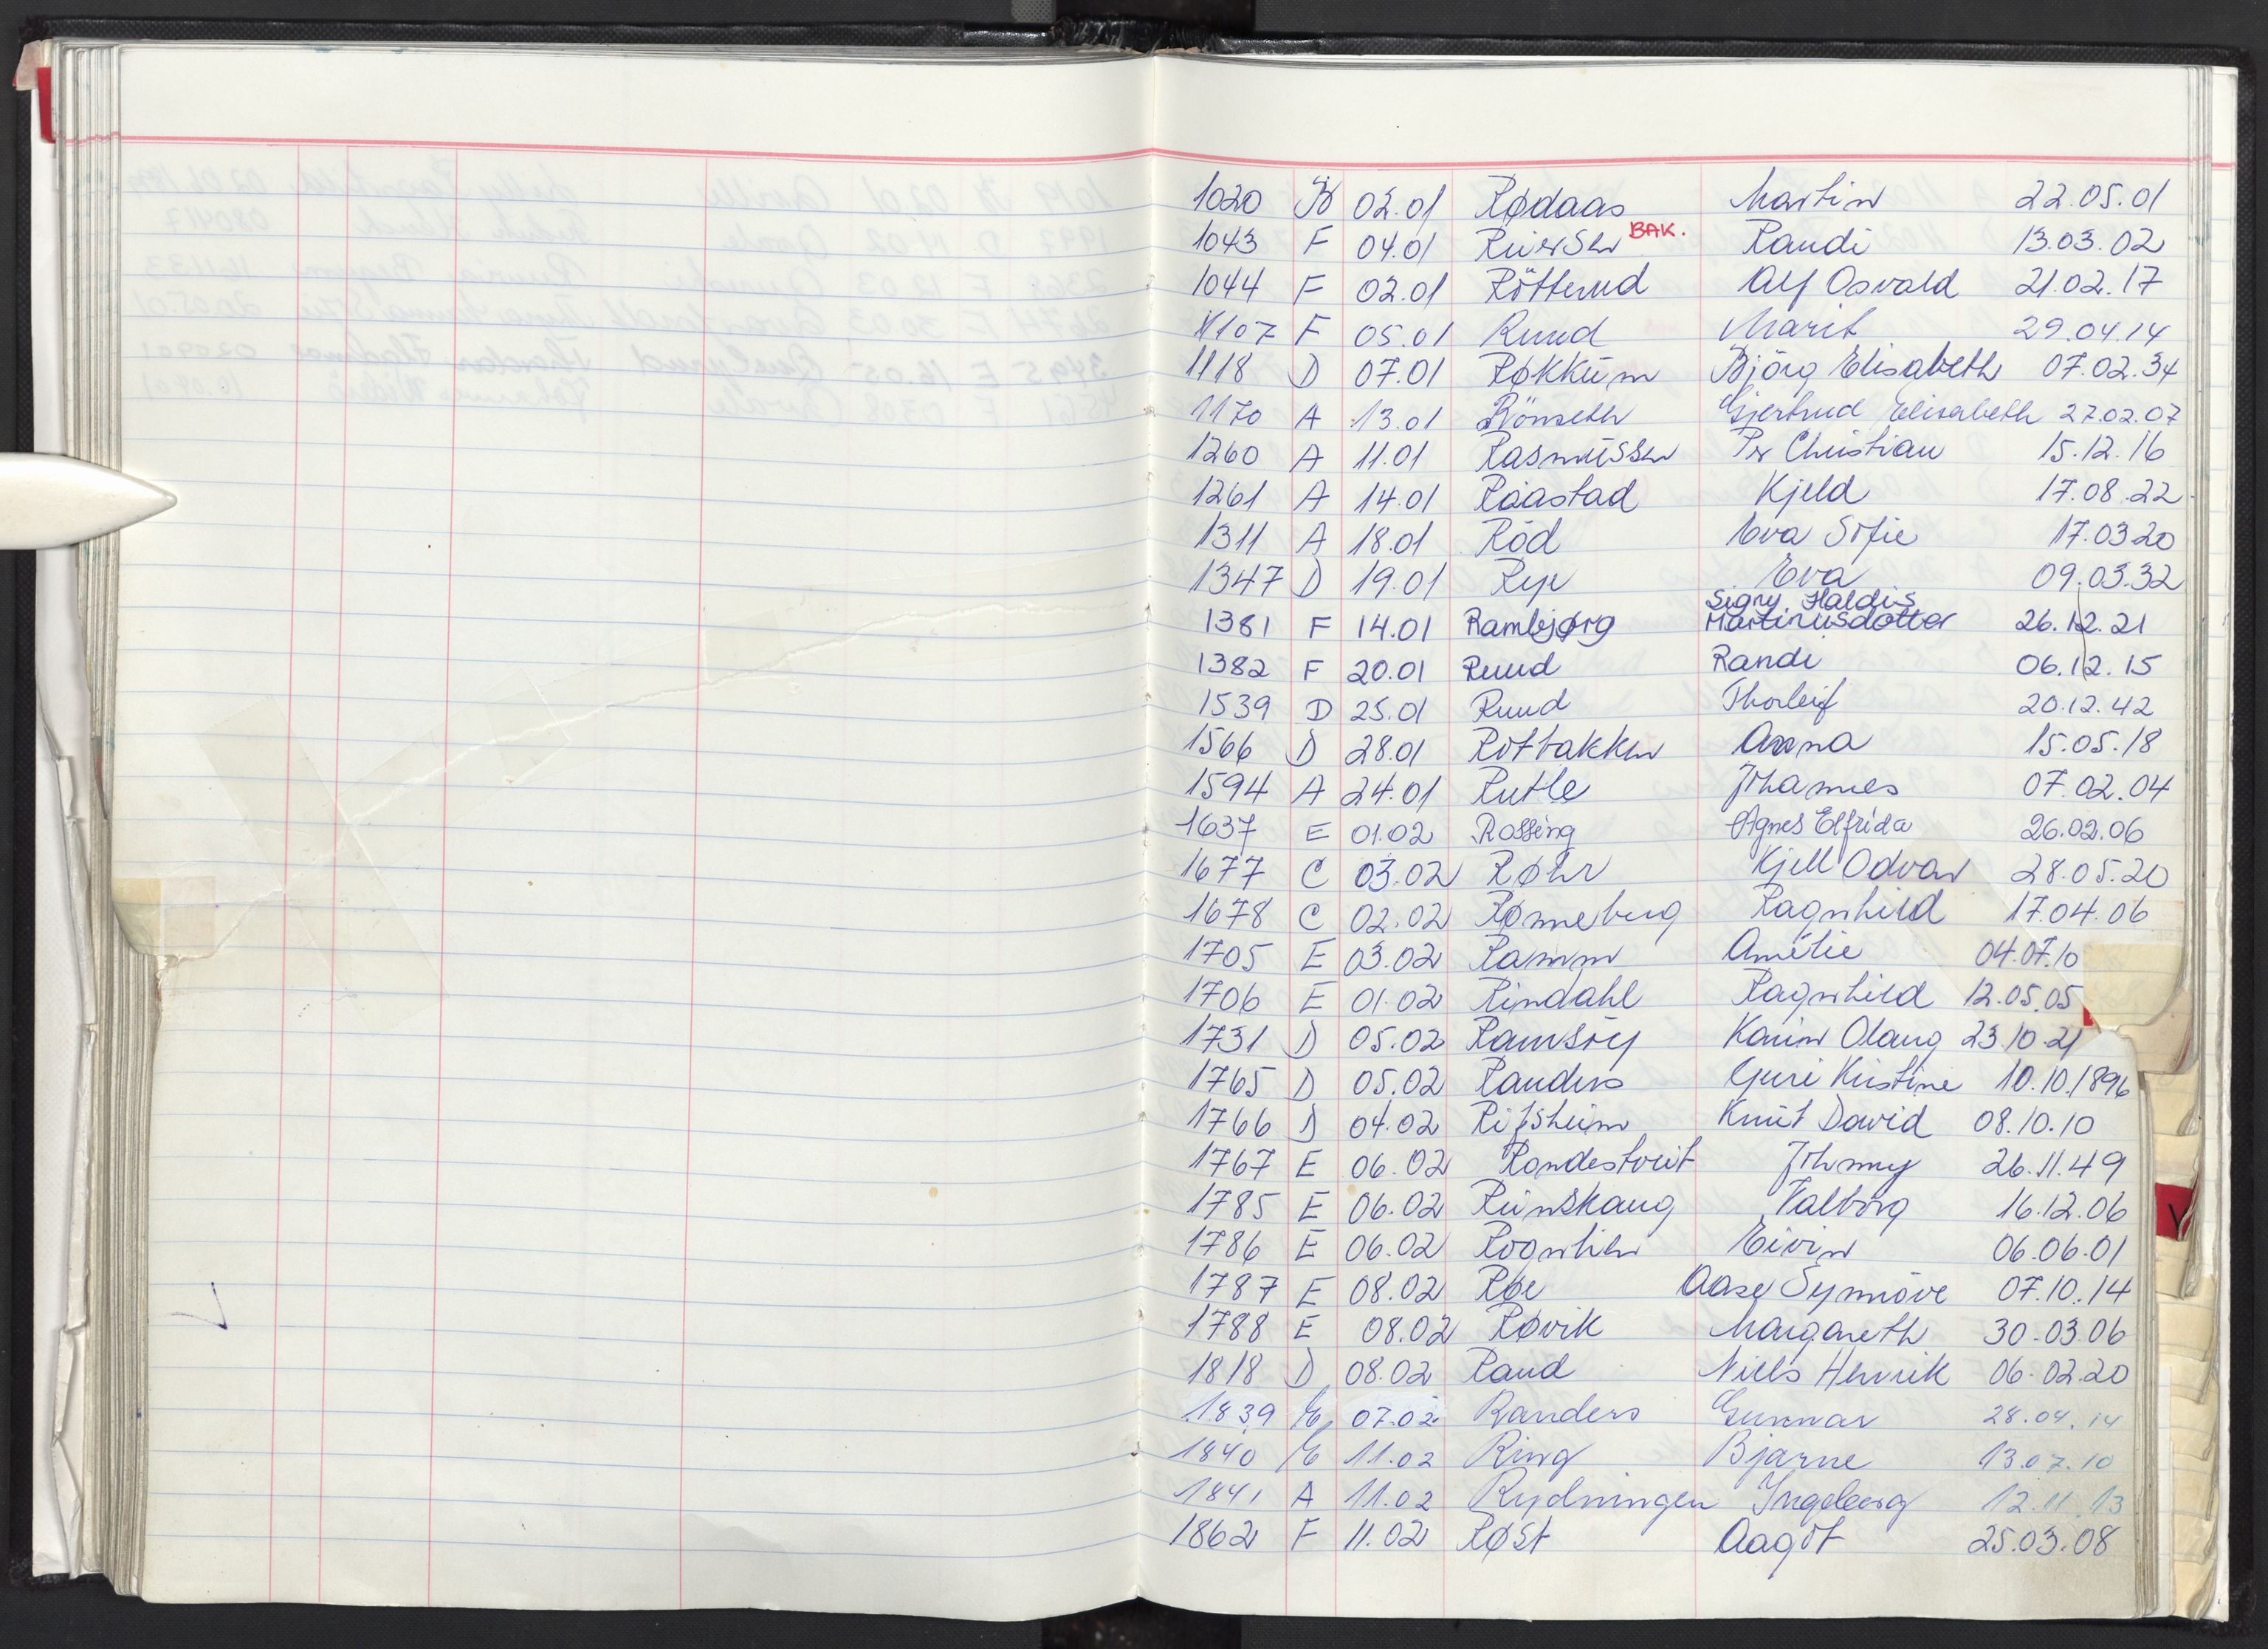 1020 B 02.01 Rødaas Martin 22.05.01
1043 F 04.01 Rüerser BAK. Randi 13.03.02
1044 F 02.01 Rötterud Alf Osvald 21.02.17
1107 F 05.01 Ruud Marit 29.04.14
1118 D 07.01 Røkküm Björg Elisabeth 07.02.34
1170 A 13.01 Römseth Gjertrud Elisabeth 27.02.07
1260 A 11.01 Rasmüssen Per Christian 15.12.16
1261 A 14.01 Raastad Kjeld 17.08.22
1311 A 18.01 Röd Eva Sofie 17.03.20
1347 D 19.01 Rye Eva 09.03.32
Signy Haldis
1381 F 14.01 Rambjørg Martinusdotter 26.12.21
1382 F 20.01 Ruud Randi 06.12.15
1539 D 25.01 Ruud Thorleif 20.12.42
1566 D 28.01 Rotbakken Anna 15.05.18
1594 A 24.01 Rutle Johannes 07.02.04
1637 E 01.02 Rossing Agnes Elfrida 26.02.06
1677 C 03.02 Røhr Kjell Odvar 28.05.20
1678 C 02.02 Rønneberg Ragnhild 17.04.06
1705 E 03.02 Ramm Amélie 04.07.10
1706 E 01.02 Rindahl Ragnhild 12.05.05
1731 D 05.02 Ramsöy Karin Olaug 23.10.21
1765 D 05.02 Randers Guri Kristine 10.10.1896
1766 D 04.02 Rifsheim Knut David 08.10.10
1767 E 06.02 Rondestveit Johnny 26.11.49
1785 E 06.02 Rünskaug Valborg 16.12.06
1786 E 06.02 Rognlien Eivin 06.06.01
1787 E 08.02 Røe Aase Synnöve 07.10.14
1788 E 08.02 Røvik Margareth 30.03.06
1818 D 08.02 Raud Niels Henrik 06.02.20
1839 E 07.02 Randers Gunnar 28.04.14
1840 E 11.02 Ring Bjarne 13.07.10
1841 A 11.02 Rydningen Ingeborg 12.11.13
1862 F 11.02 Røst Aagot 25.03.08
V